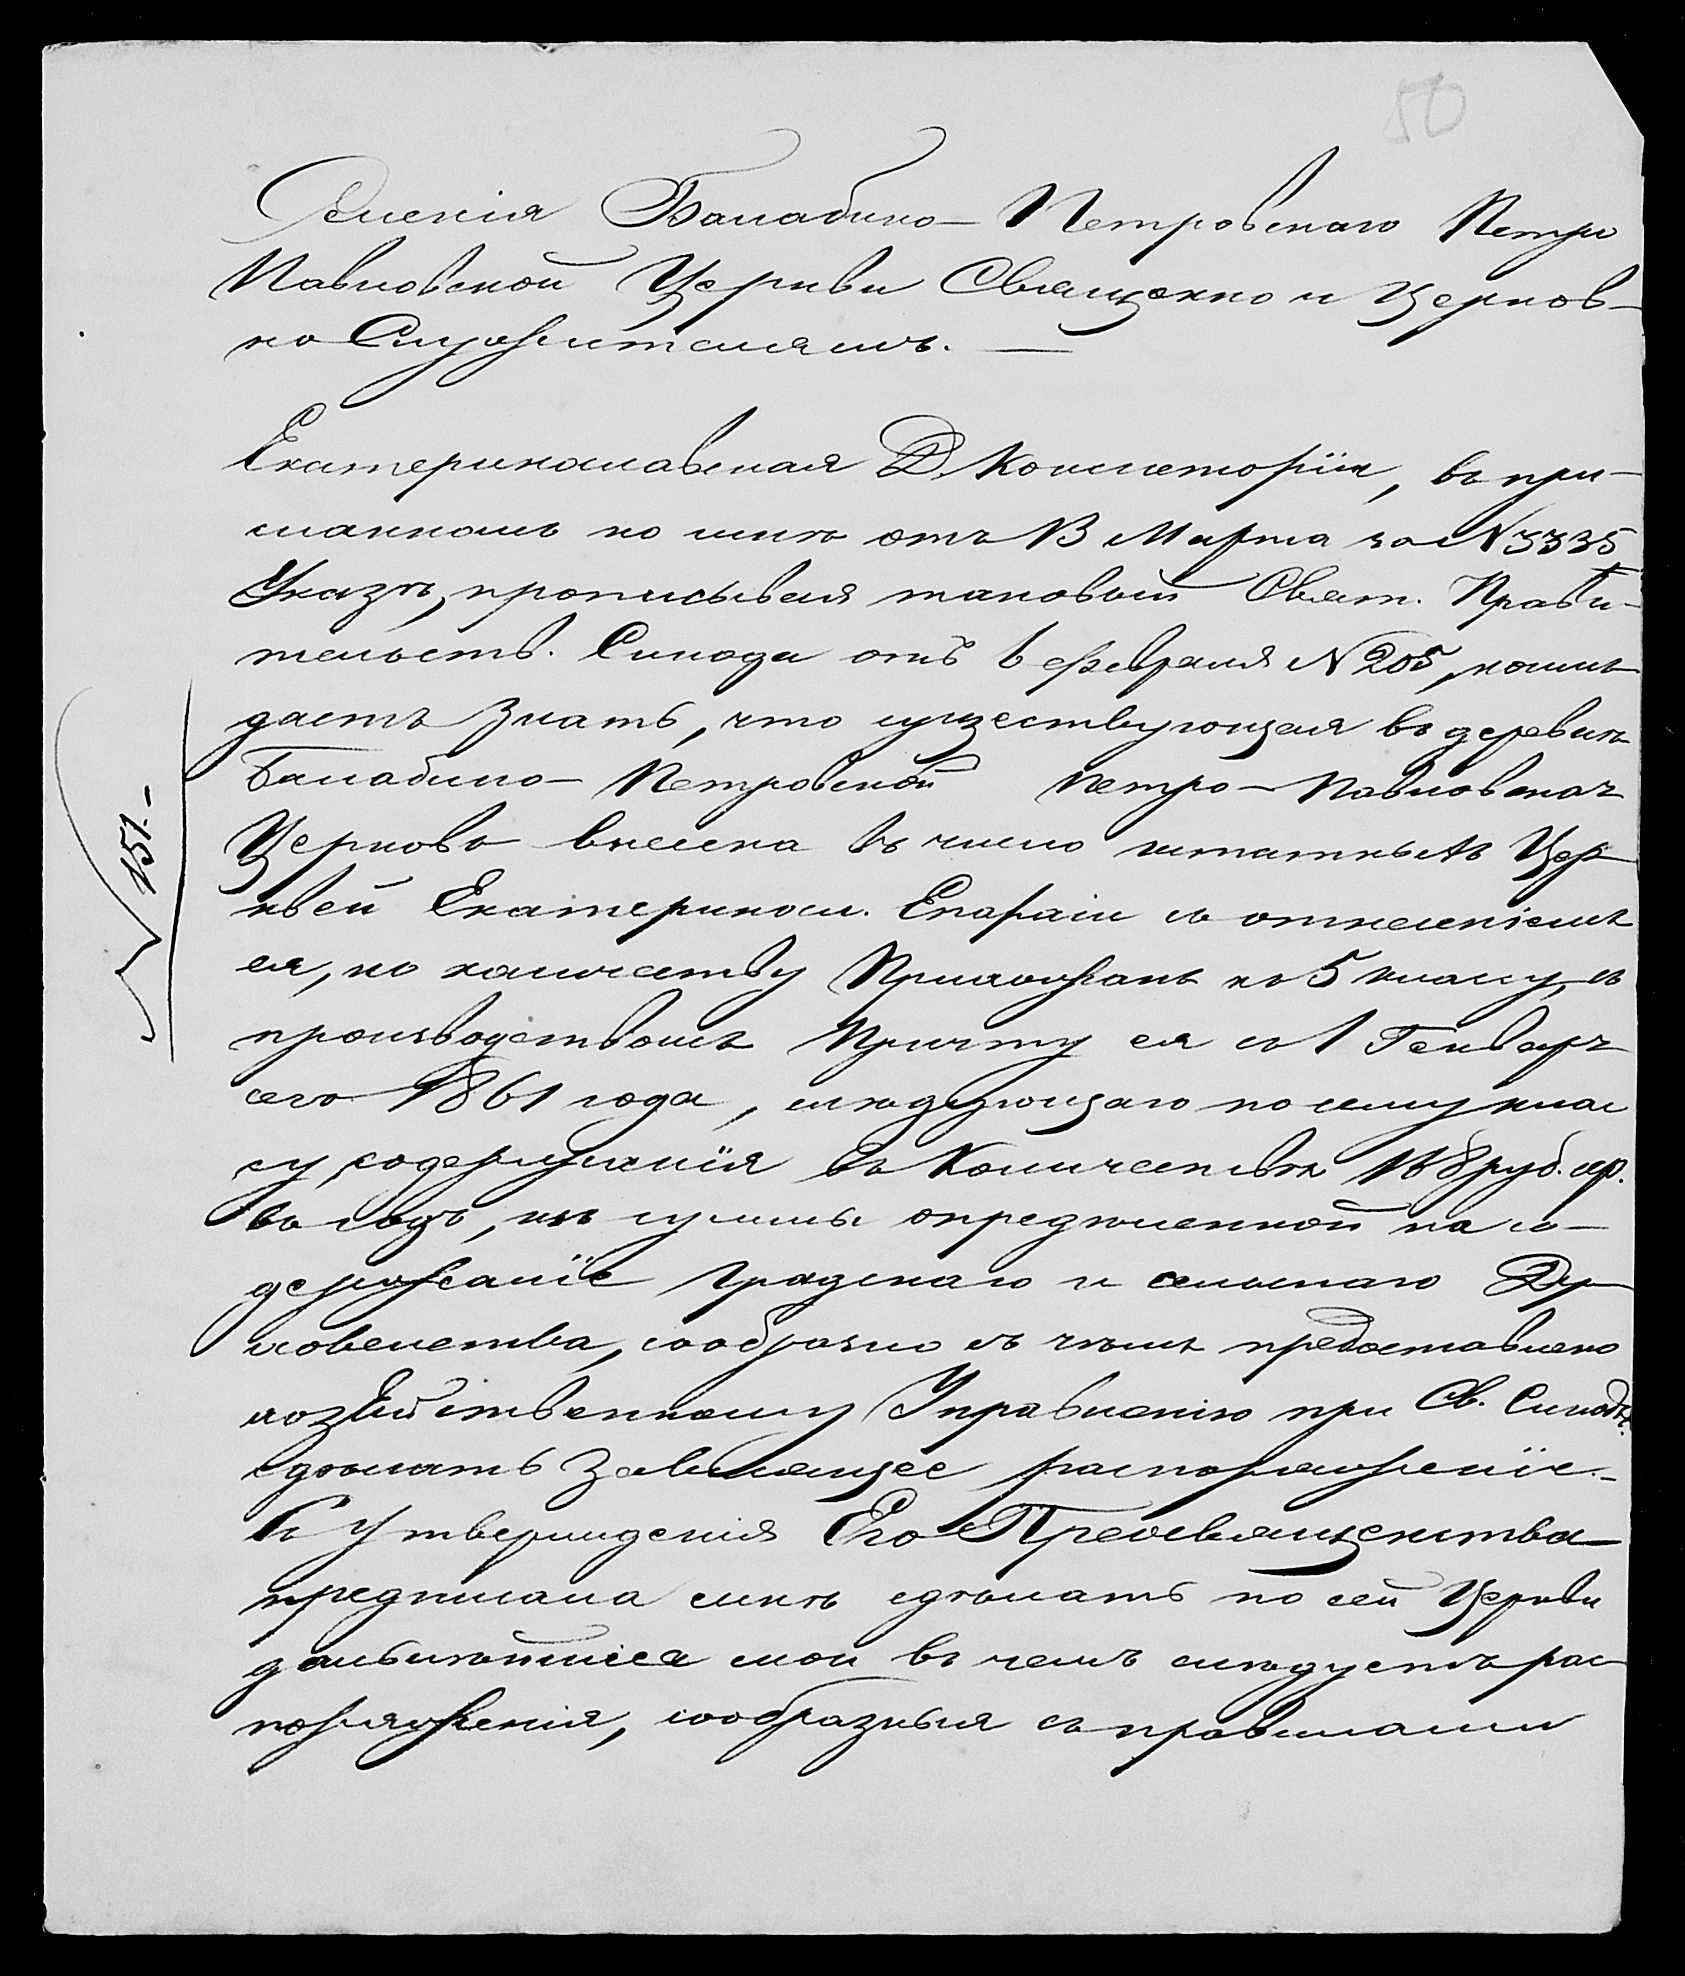 50
Селенія Балабино-Петровскаго Петро
Павловской Церкви Священно и Церков-
но Служителямъ. —
Екатеринославская Д. Консисторія, въ при-
сланномъ ко мнѣ отъ 13 Марта за № 3335
Указѣ, прописывая таковый Свят. Прави-
тельств. Синода отъ 6 февраля № 205, коимъ
даетъ знать, что существующая въ деревнѣ
Балабино-Петровской Петро-Павловская
Церковь внесена въ число штатныхъ Цер-
квей Екатеринос. Епархіи съ отнесеніемъ
ея, по количеству Прихожанъ къ 5 классу, съ
производствомъ Причту ея съ 1 Генваря
сего 1861 года, слѣдующаго по сему клас
су, содержанія въ количествѣ руб. сер.
въ годъ, изъ суммы опредѣленной на со-
держаніе градскаго и сельскаго Ду-
ховенства, сообразно съ чѣмъ предоставлено
хозяйственному Управленію при Св. Синодѣ
сдѣлать зависящее распоряженіе.-
Съ Утвержденія Его Преосвященства
предписала мнѣ сдѣлать по сей Церкви
дальнѣйшіся мои въ чемъ слѣдуетъ рас
поряженія, сообразныя съ правилами
№ 151.-